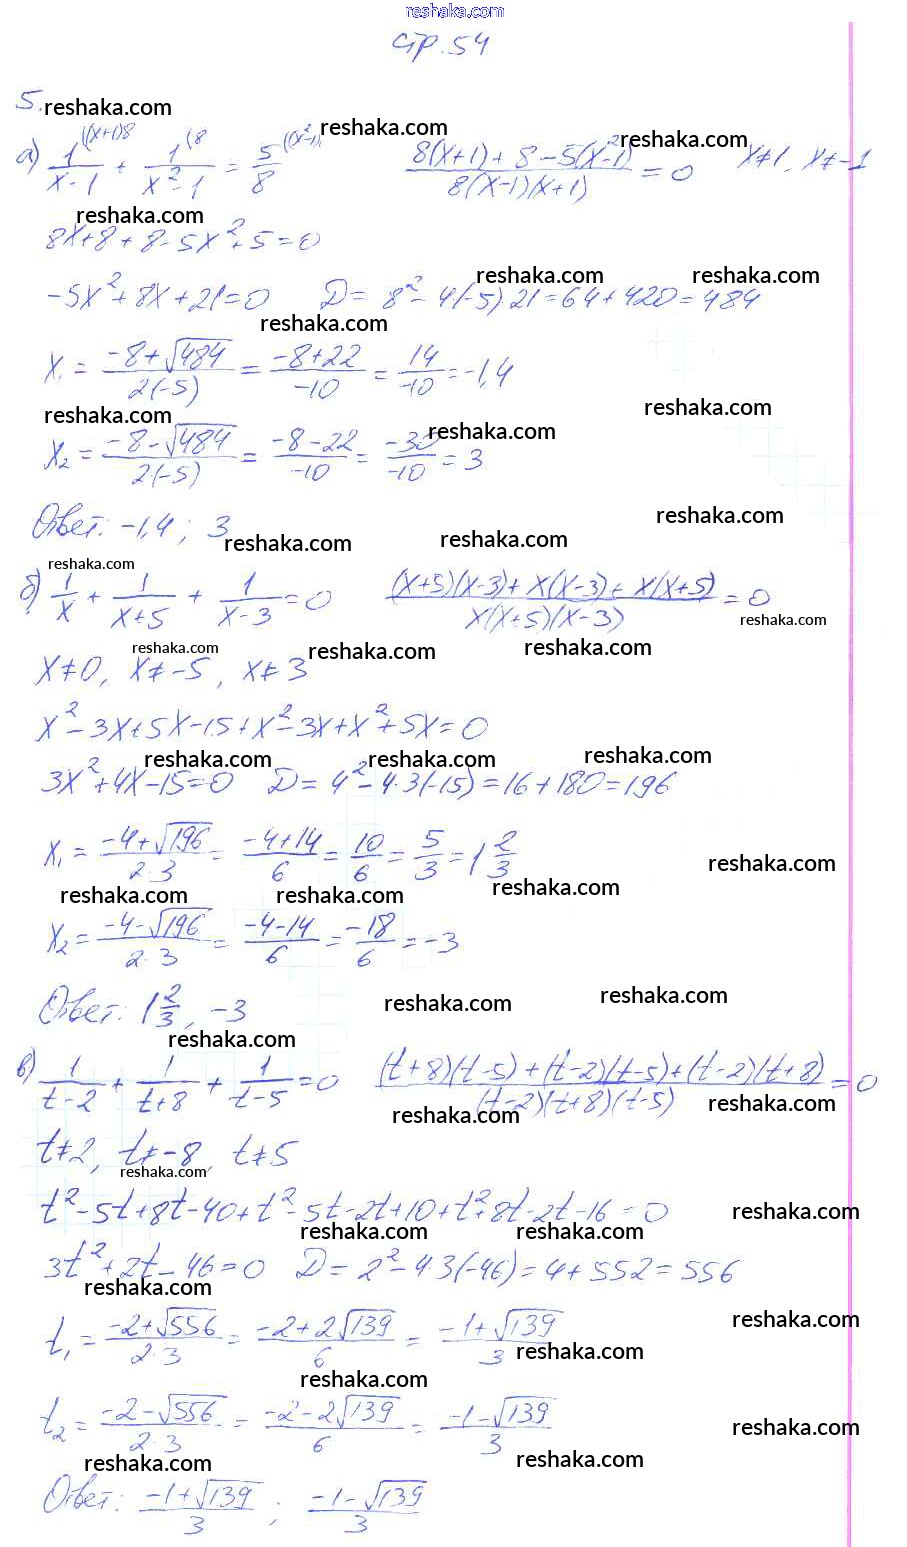 reshaka.com
стр. 54
5. reshaka.com
а) 1/(x-1) ((x+1)8 + 1/(x²-1) (8 = 5/8 ((x²-1) reshaka.com (8(x+1)+8-5(x²-1))/(8(x-1)(x+1)) = 0 reshaka.com x≠1, x≠-1
reshaka.com
8x+8+8-5x²+5=0
reshaka.com reshaka.com
-5x²+8x+21=0 D= 8²-4(-5)21=64+420=484
reshaka.com
x₁ = (-8+√484)/(2(-5)) = (-8+22)/(-10) = 14/(-10) = -1,4
reshaka.com reshaka.com reshaka.com
x₂ = (-8-√484)/(2(-5)) = (-8-22)/(-10) = (-30)/(-10) = 3
reshaka.com
Ответ: -1,4; 3 reshaka.com reshaka.com
reshaka.com
б) 1/x + 1/(x+5) + 1/(x-3) = 0 ((x+5)(x-3)+x(x-3)+x(x+5))/(x(x+5)(x-3)) = 0
reshaka.com
reshaka.com reshaka.com reshaka.com
x≠0, x≠-5, x≠3
x²-3x+5x-15+x²-3x+x²+5x=0
reshaka.com reshaka.com reshaka.com
3x²+4x-15=0 D= 4²-4·3(-15)=16+180=196
x₁ = (-4+√196)/(2·3) = (-4+14)/6 = 10/6 = 5/3 = 1 2/3
reshaka.com
reshaka.com reshaka.com reshaka.com
x₂ = (-4-√196)/(2·3) = (-4-14)/6 = -18/6 = -3
Ответ: 1 2/3, -3 reshaka.com reshaka.com
reshaka.com
в) 1/(t-2) + 1/(t+8) + 1/(t-5) = 0 ((t+8)(t-5)+(t-2)(t-5)+(t-2)(t+8))/((t-2)(t+8)(t-5)) = 0
reshaka.com reshaka.com
t≠2, t≠-8, t≠5
reshaka.com
t²-5t+8t-40+t²-5t-2t+10+t²+8t-2t-16=0
reshaka.com reshaka.com reshaka.com
3t²+2t-46=0 D= 2²-4·3(-46)=4+552=556
reshaka.com
t₁ = (-2+√556)/(2·3) = (-2+2√139)/6 = (-1+√139)/3
reshaka.com reshaka.com reshaka.com
t₂ = (-2-√556)/(2·3) = (-2-2√139)/6 = (-1-√139)/3
reshaka.com reshaka.com reshaka.com
Ответ: (-1+√139)/3; (-1-√139)/3